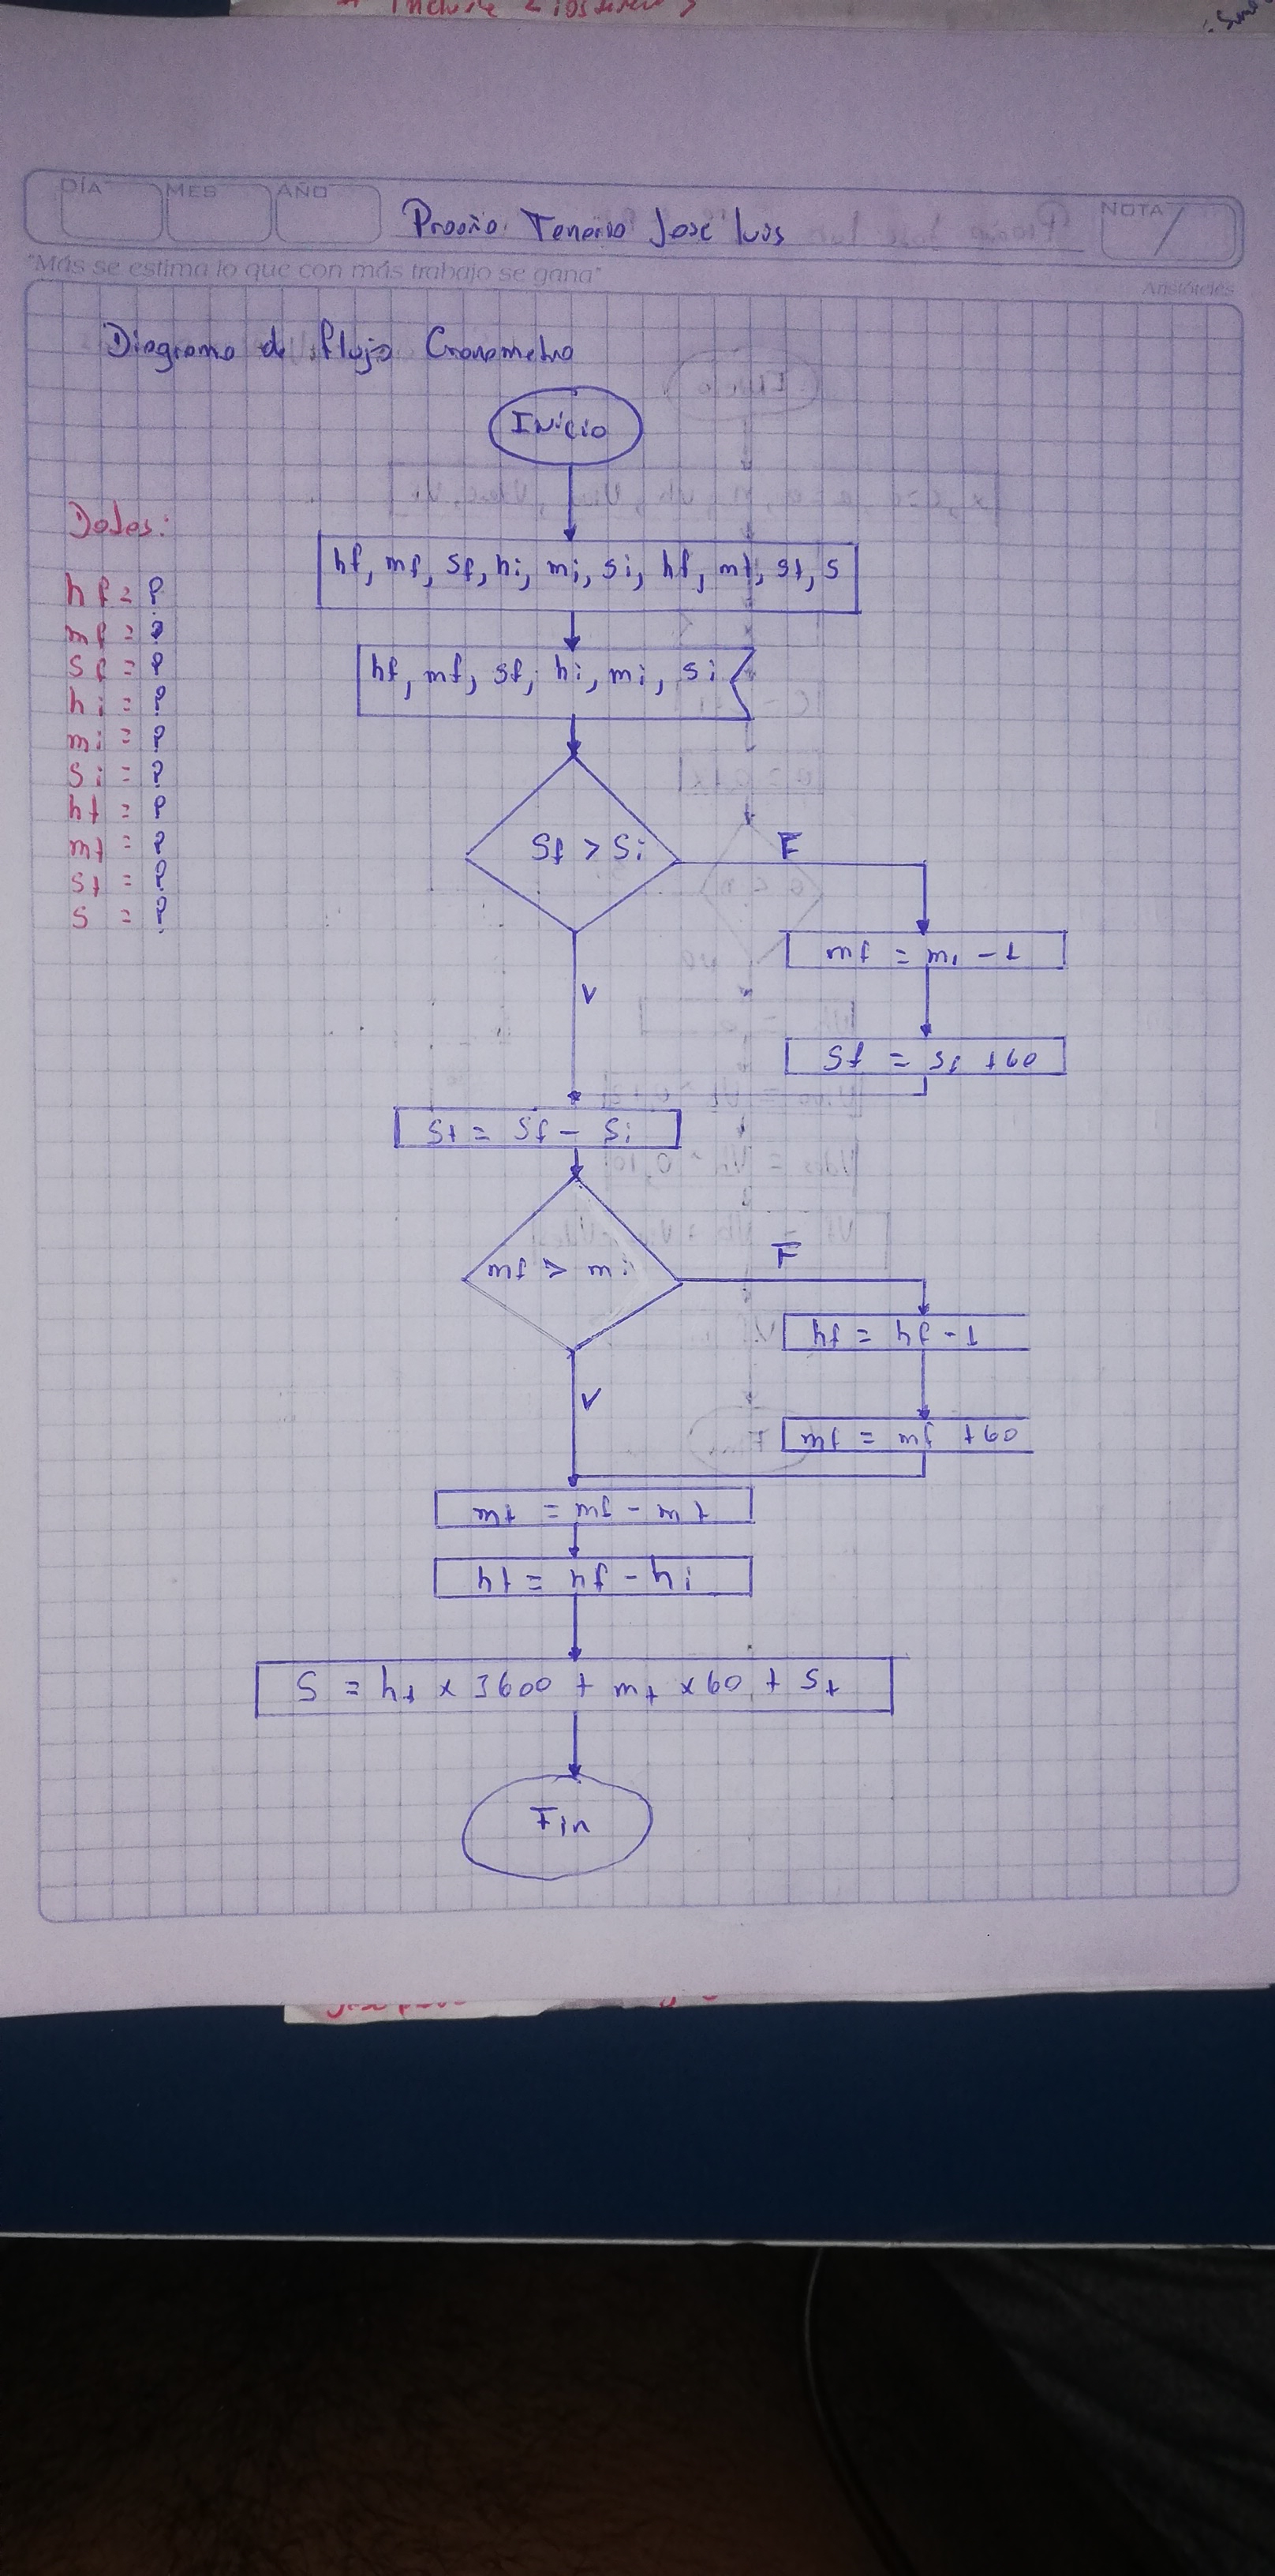 DÍA MES AÑO
Tenorio Jose Luis
NOTA
"Más se estima lo que con más trabajo se gana"
Aristóteles
Diagrama de flujo Cronometro
Inicio
Datos:
hf, mf, sf, hi, mi, si, ht, mt, st, s
hf = ?
mf = ?
sf = ?
hi = ?
mi = ?
si = ?
ht = ?
mt = ?
st = ?
s = ?
hf, mf, sf, hi, mi, si
Sf > Si
F
mf = mi - 1
V
Sf = sf + 60
St = Sf - Si
mf > mi
F
hf = hf - 1
V
mf = mf + 60
mt = mf - mt
ht = hf - hi
S = ht x 3600 + mt x 60 + St
Fin